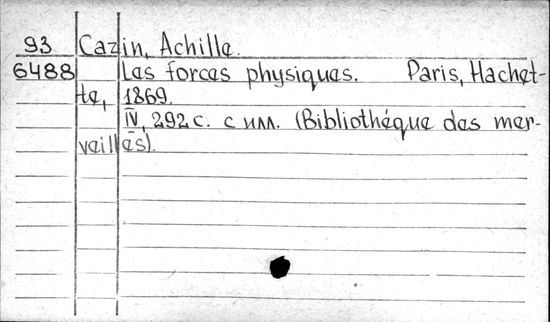 93 Cazin, Achille.
6488 Les forces physiques. Paris, Hachet-
te, 1869.
IV, 292 с. с илл. (Bibliothéque des mer-
veilles).